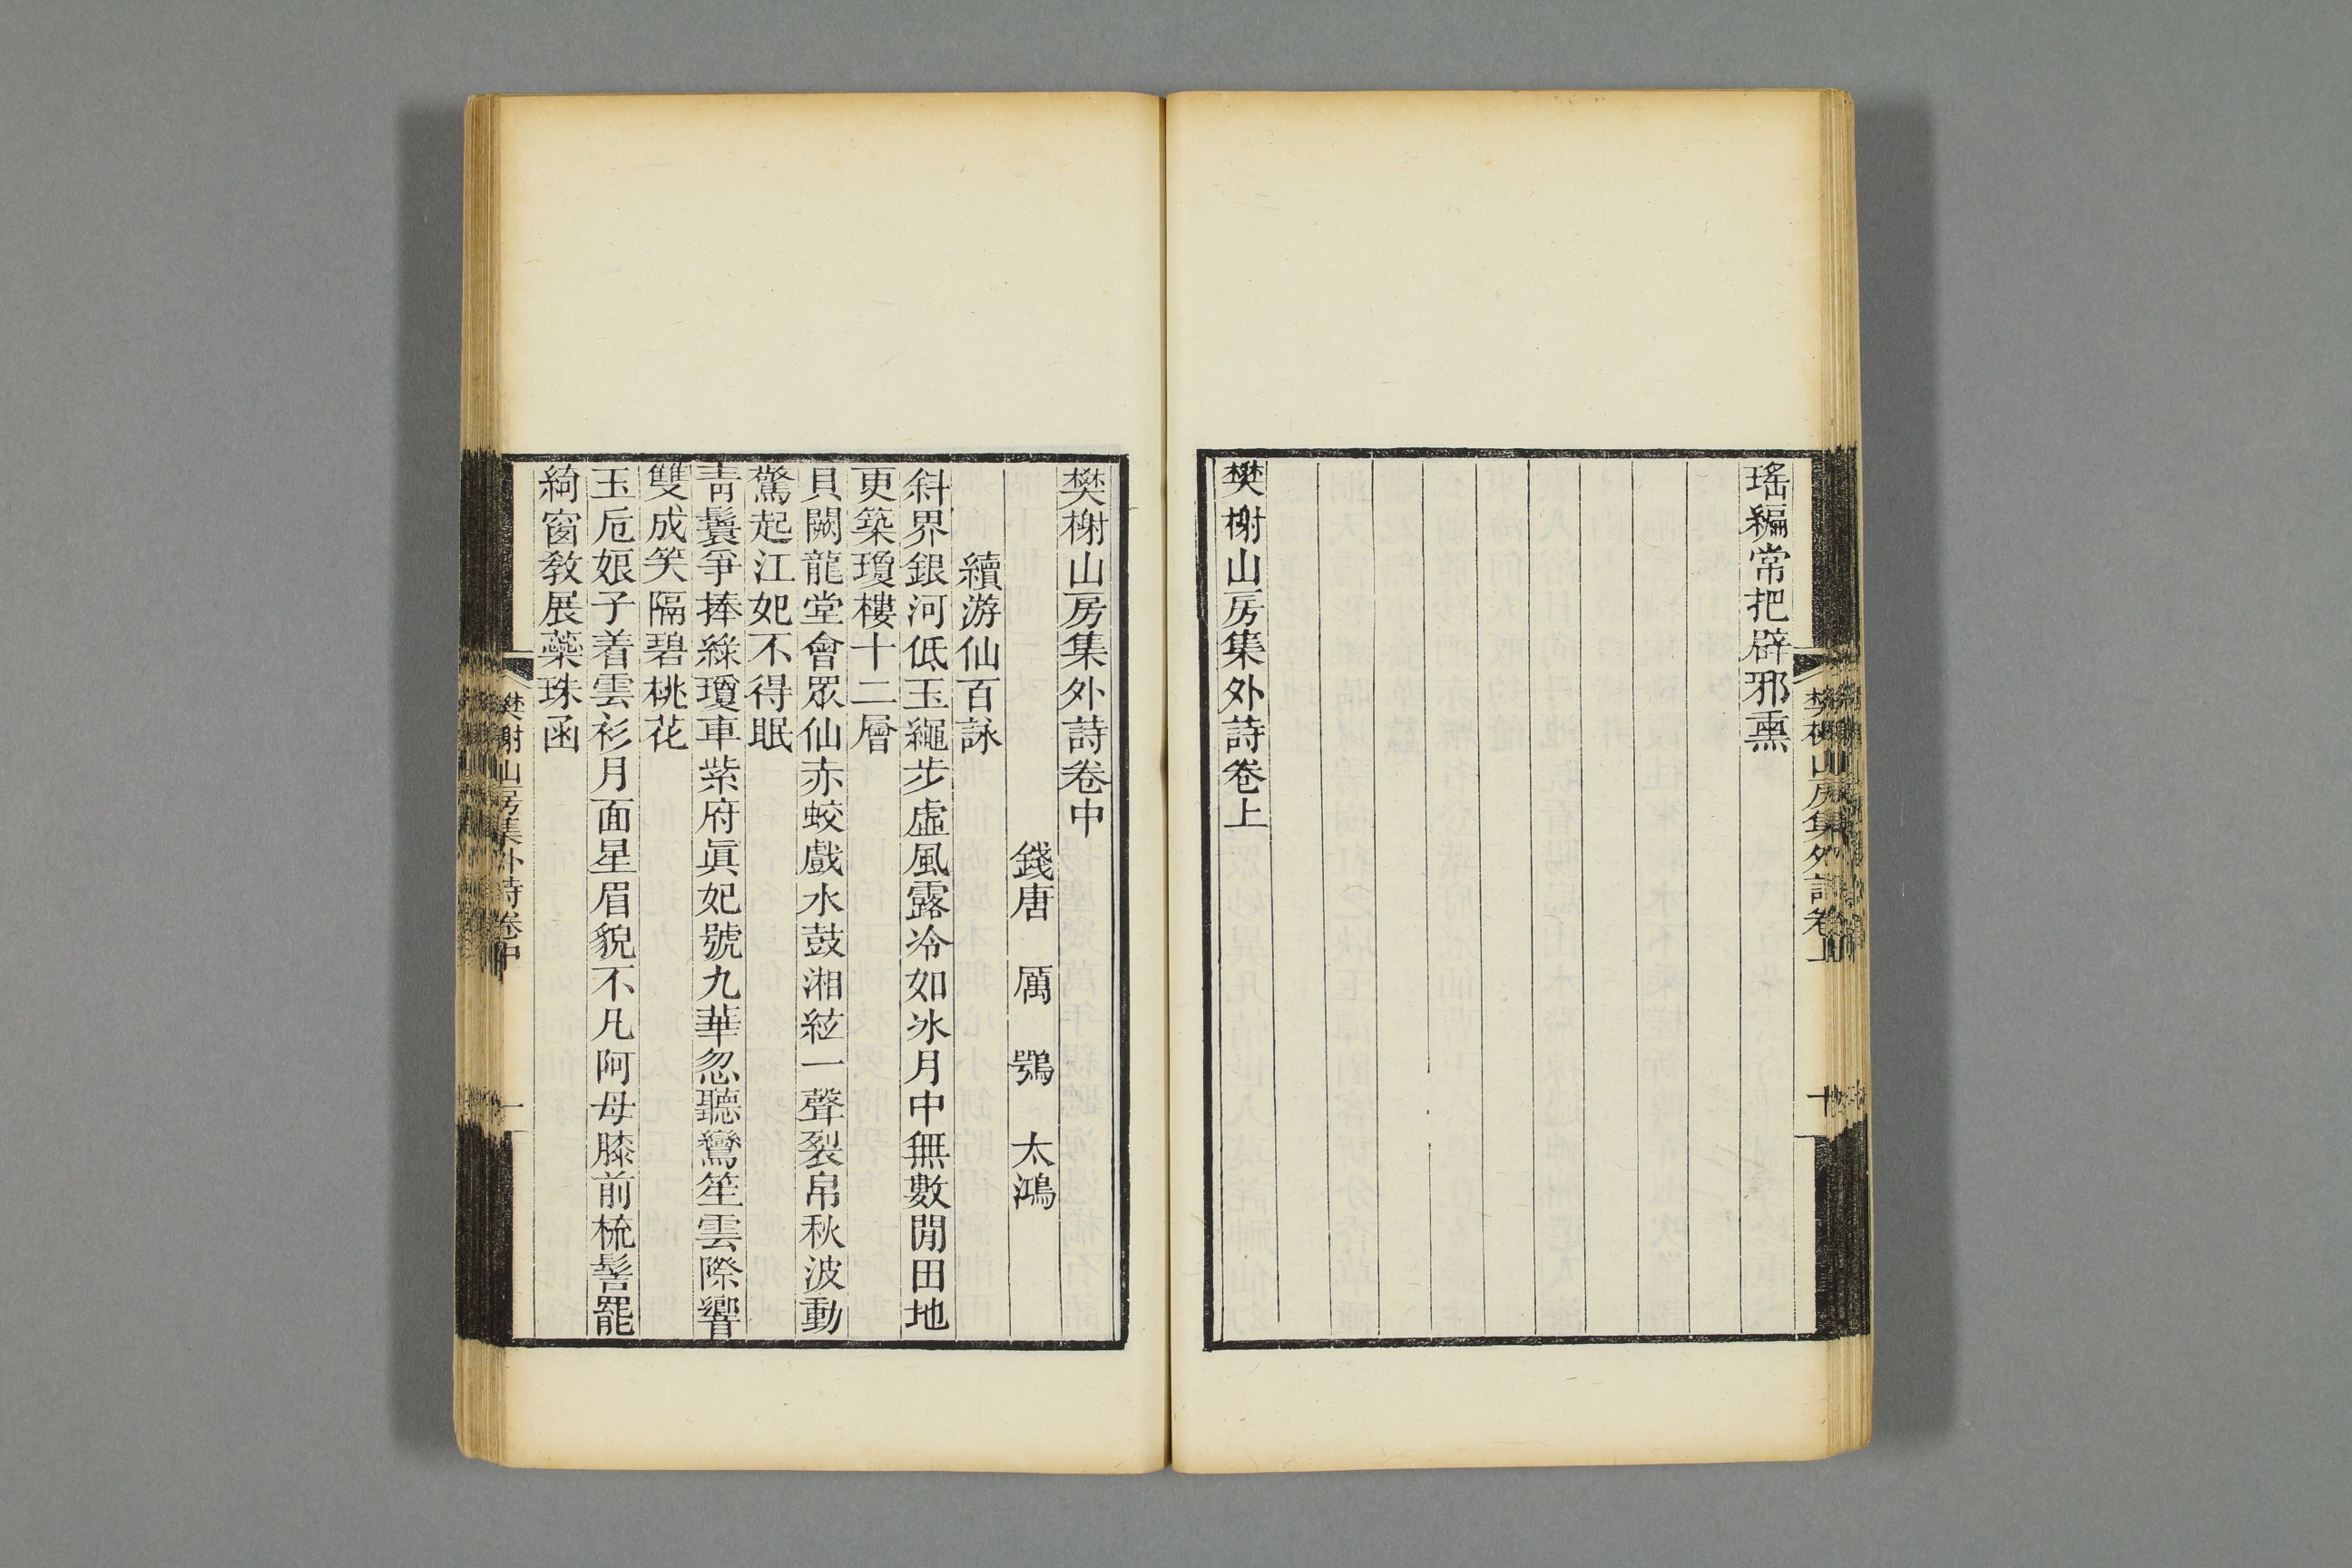 瑤編常把辟邪熏
樊榭山房集外詩卷上
樊榭山房集外詩卷上
十
樊榭山房集外詩卷中
錢唐　厲　鶚　太鴻
續游仙百詠
斜界銀河低玉繩步虛風露冷如冰月中無數閒田地
更築瓊樓十二層
貝闕龍堂會眾仙赤蛟戲水鼓湘絃一聲裂帛秋波動
驚起江妃不得眠
靑鬟爭捧綠瓊車紫府眞妃號九華忽聽鸞笙雲際響
雙成笑隔碧桃花
玉卮娘子着雲衫月面星眉貌不凡阿母膝前梳髻罷
綺窗敎展蘂珠函
樊榭山房集外詩卷中
一